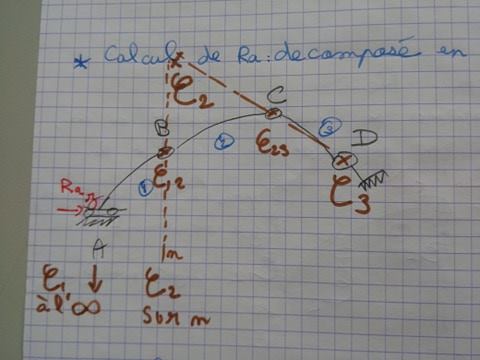 * Calcul de Ra: decomposé en
C2
C
B
2
3
D
C23
C12
1
Ra
C3
A
n
C1
à l'∞
C2
sur n